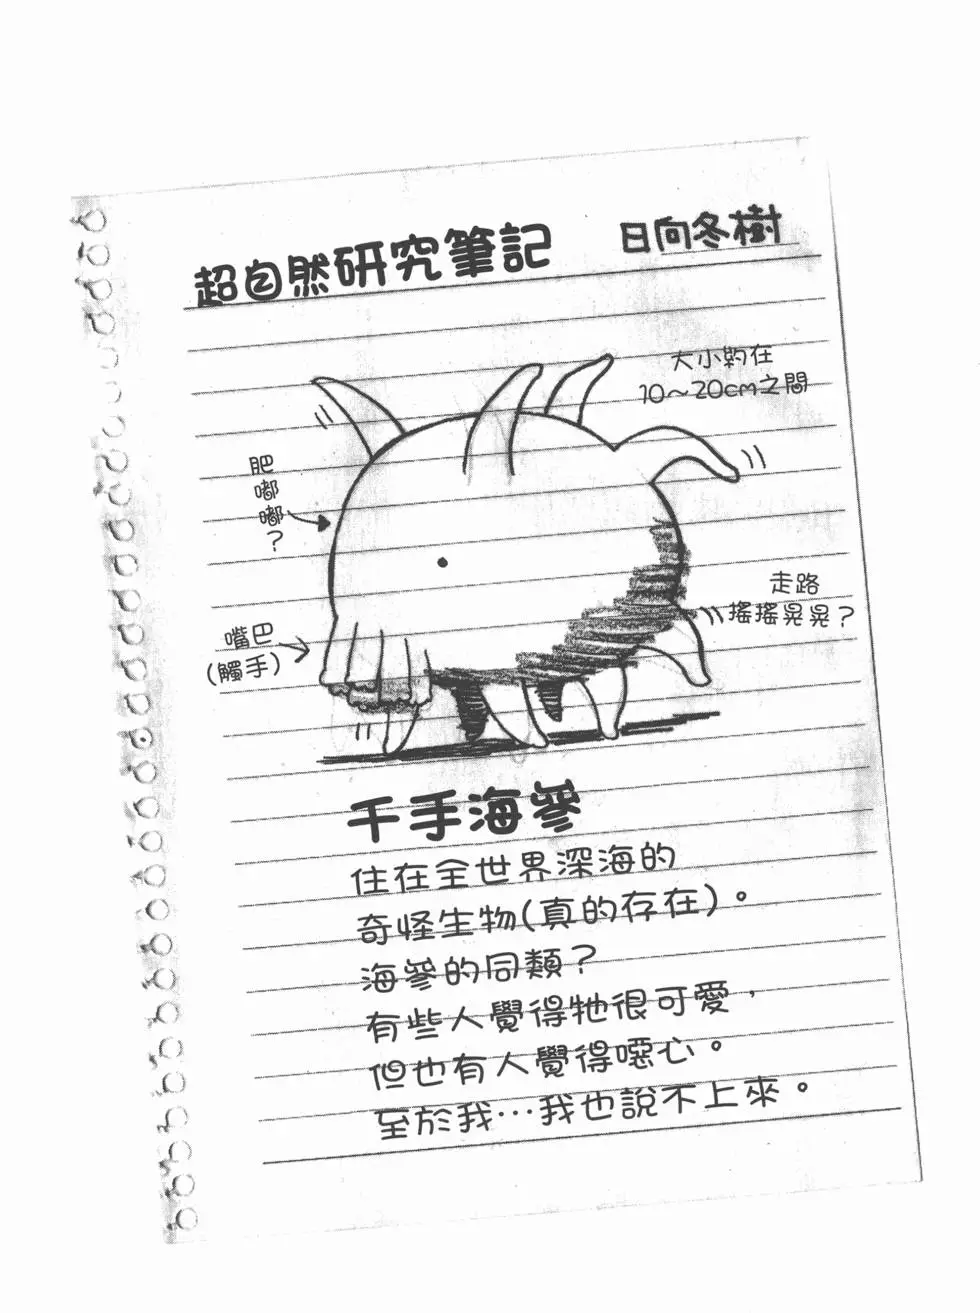 超自然研究筆記
日向冬樹
大小約在
10～20cm之間
肥嘟嘟？
走路
搖搖晃晃？
嘴巴
(觸手)
千手海參
住在全世界深海的
奇怪生物(真的存在)。
海參的同類？
有些人覺得牠很可愛，
但也有人覺得噁心。
至於我…我也說不上來。